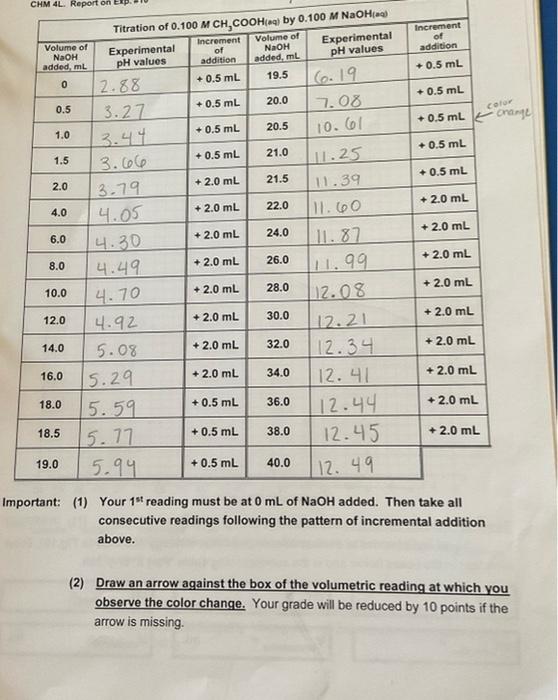 CHM 4L. Report on Exp. #10
Titration of 0.100 M CH3COOH(aq) by 0.100 M NaOH(aq)
Volume of NaOH added, mL Experimental pH values Increment of addition Volume of NaOH added, mL Experimental pH values Increment of addition
0 2.88 + 0.5 mL 19.5 6.19 + 0.5 mL
0.5 3.27 + 0.5 mL 20.0 7.08 + 0.5 mL
1.0 3.44 + 0.5 mL 20.5 10.61 + 0.5 mL color change
1.5 3.66 + 0.5 mL 21.0 11.25 + 0.5 mL
2.0 3.79 + 2.0 mL 21.5 11.39 + 0.5 mL
4.0 4.05 + 2.0 mL 22.0 11.60 + 2.0 mL
6.0 4.30 + 2.0 mL 24.0 11.87 + 2.0 mL
8.0 4.49 + 2.0 mL 26.0 11.99 + 2.0 mL
10.0 4.70 + 2.0 mL 28.0 12.08 + 2.0 mL
12.0 4.92 + 2.0 mL 30.0 12.21 + 2.0 mL
14.0 5.08 + 2.0 mL 32.0 12.34 + 2.0 mL
16.0 5.29 + 2.0 mL 34.0 12.41 + 2.0 mL
18.0 5.59 + 0.5 mL 36.0 12.44 + 2.0 mL
18.5 5.77 + 0.5 mL 38.0 12.45 + 2.0 mL
19.0 5.94 + 0.5 mL 40.0 12.49
Important: (1) Your 1st reading must be at 0 mL of NaOH added. Then take all
consecutive readings following the pattern of incremental addition
above.
(2) Draw an arrow against the box of the volumetric reading at which you
observe the color change. Your grade will be reduced by 10 points if the
arrow is missing.